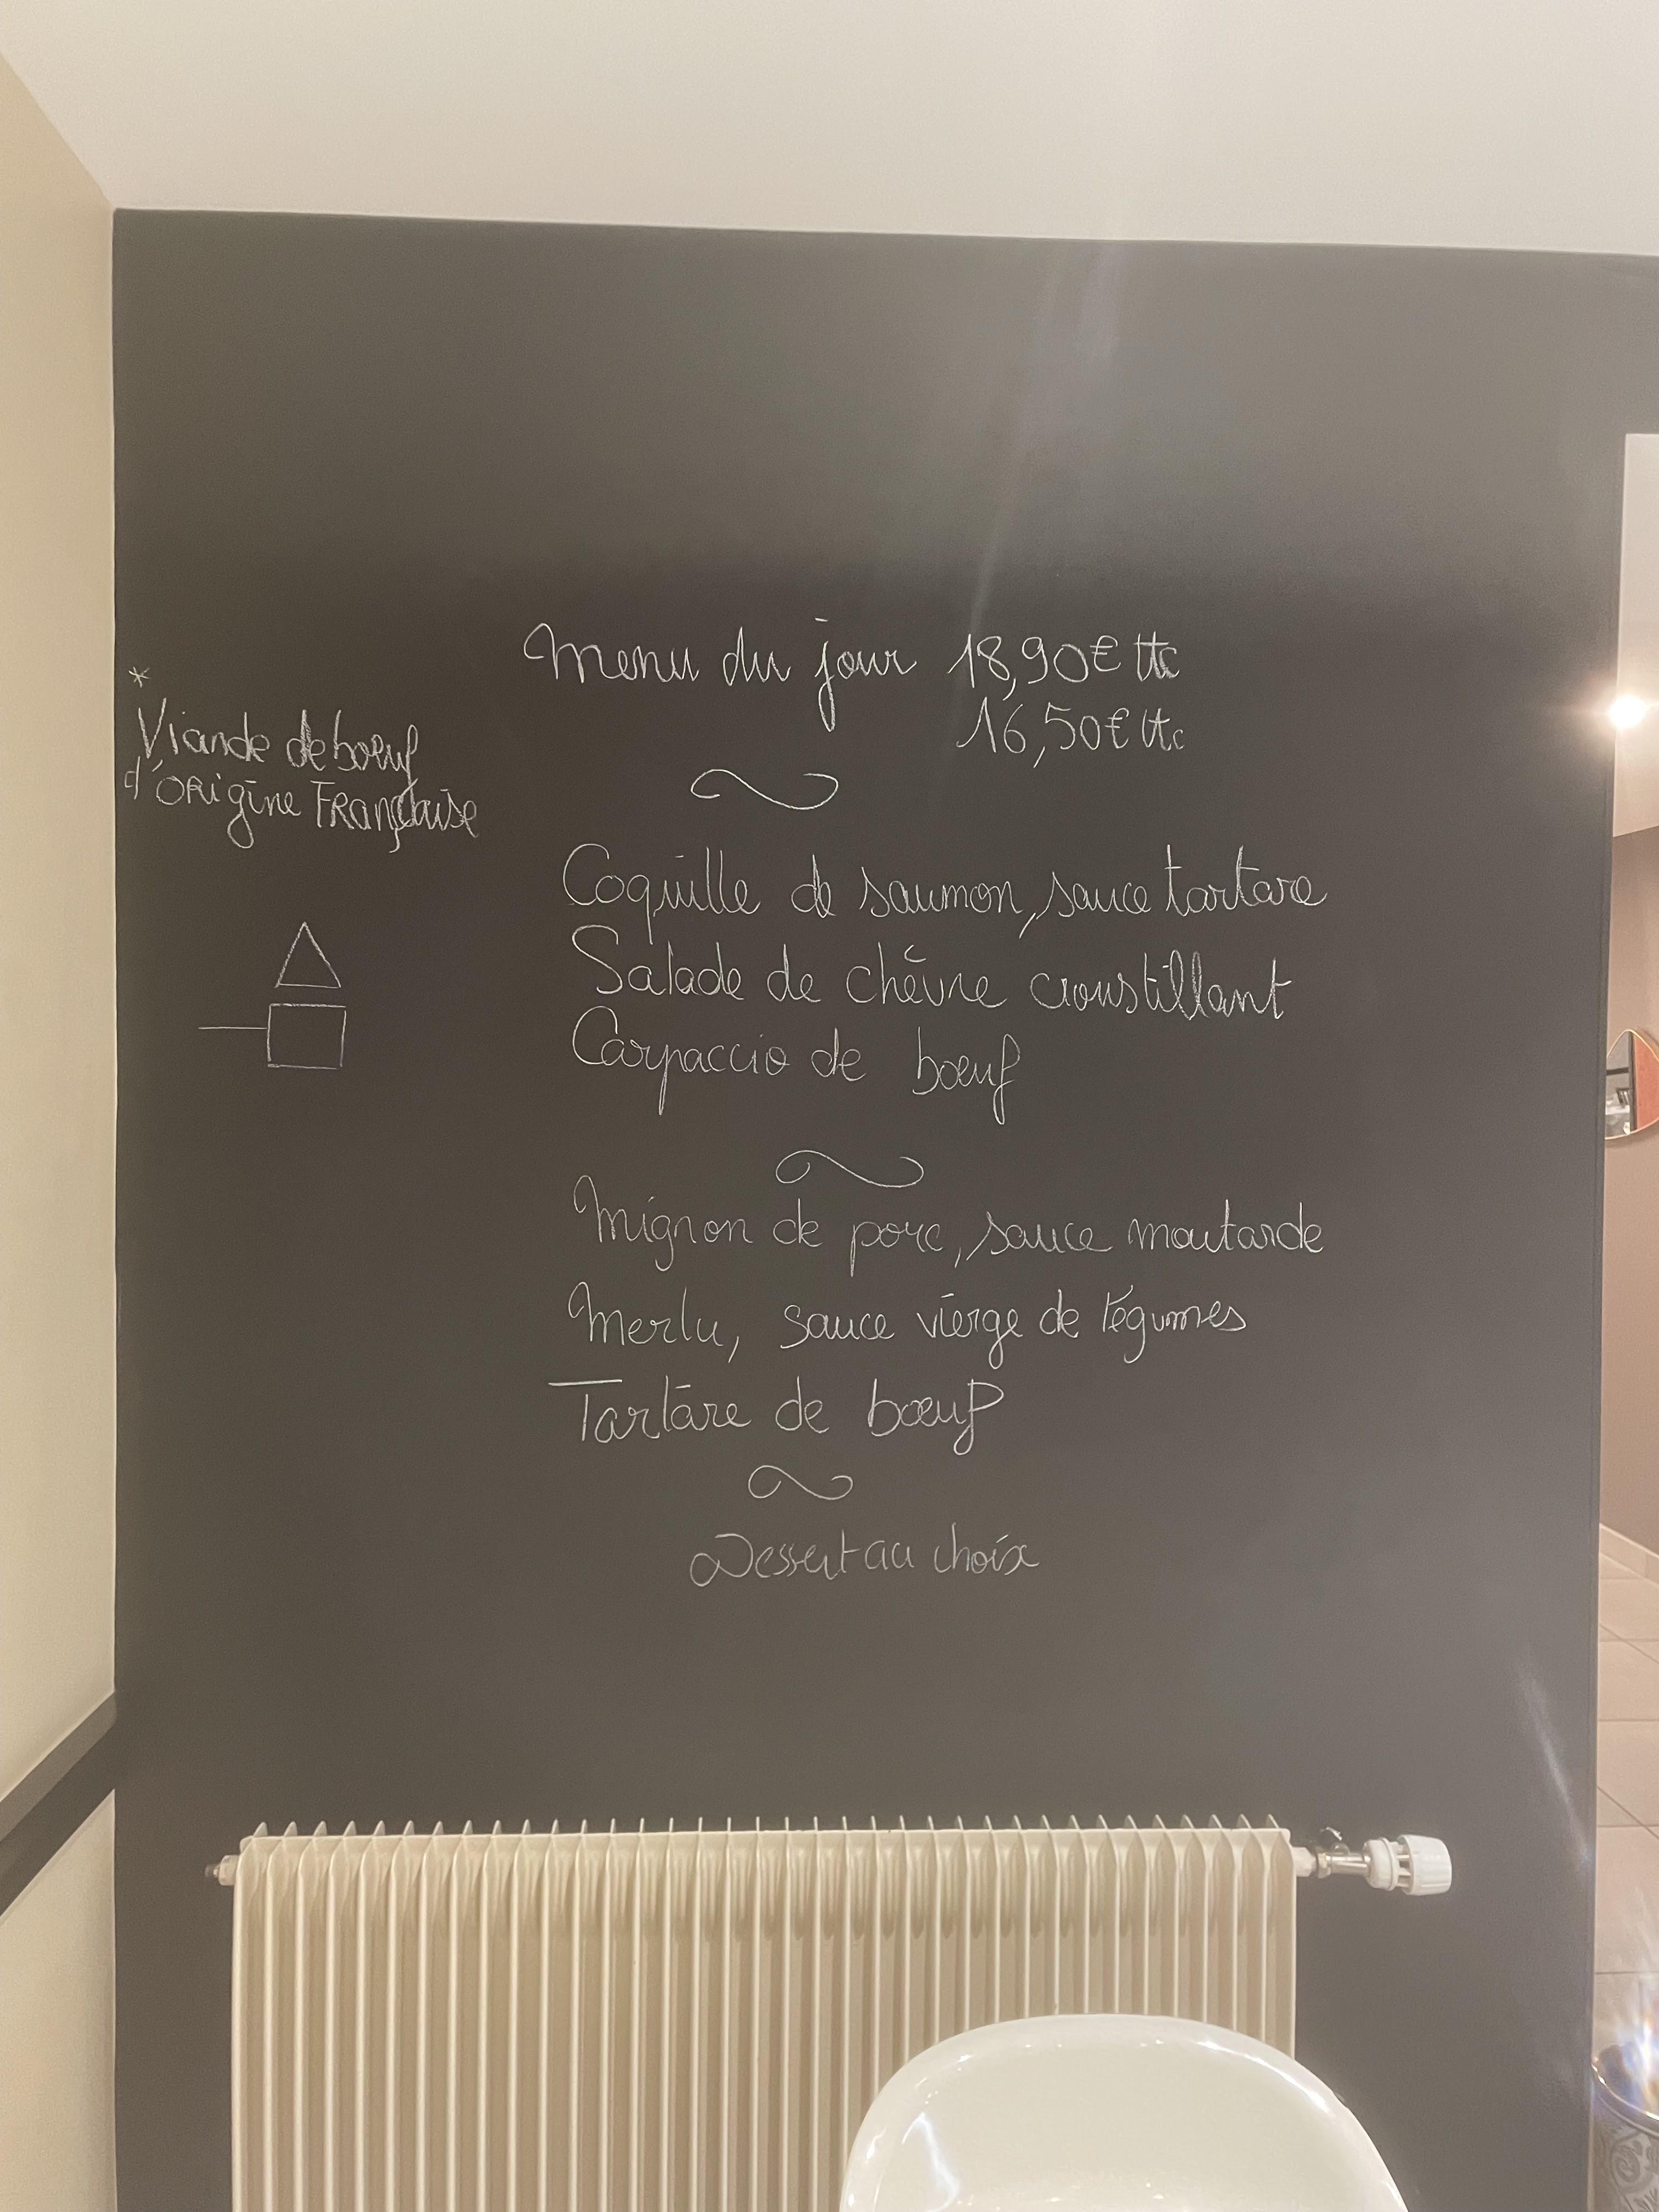 Menu du jour 18,90€ ttc
16,50€ ttc
*
Viande de boeuf
d'origine Française
Coquille de saumon, sauce tartare
Salade de chèvre croustillant
Carpaccio de boeuf
Mignon de porc, sauce moutarde
Merlu, sauce vierge de légumes
Tartare de boeuf
Dessert au choix